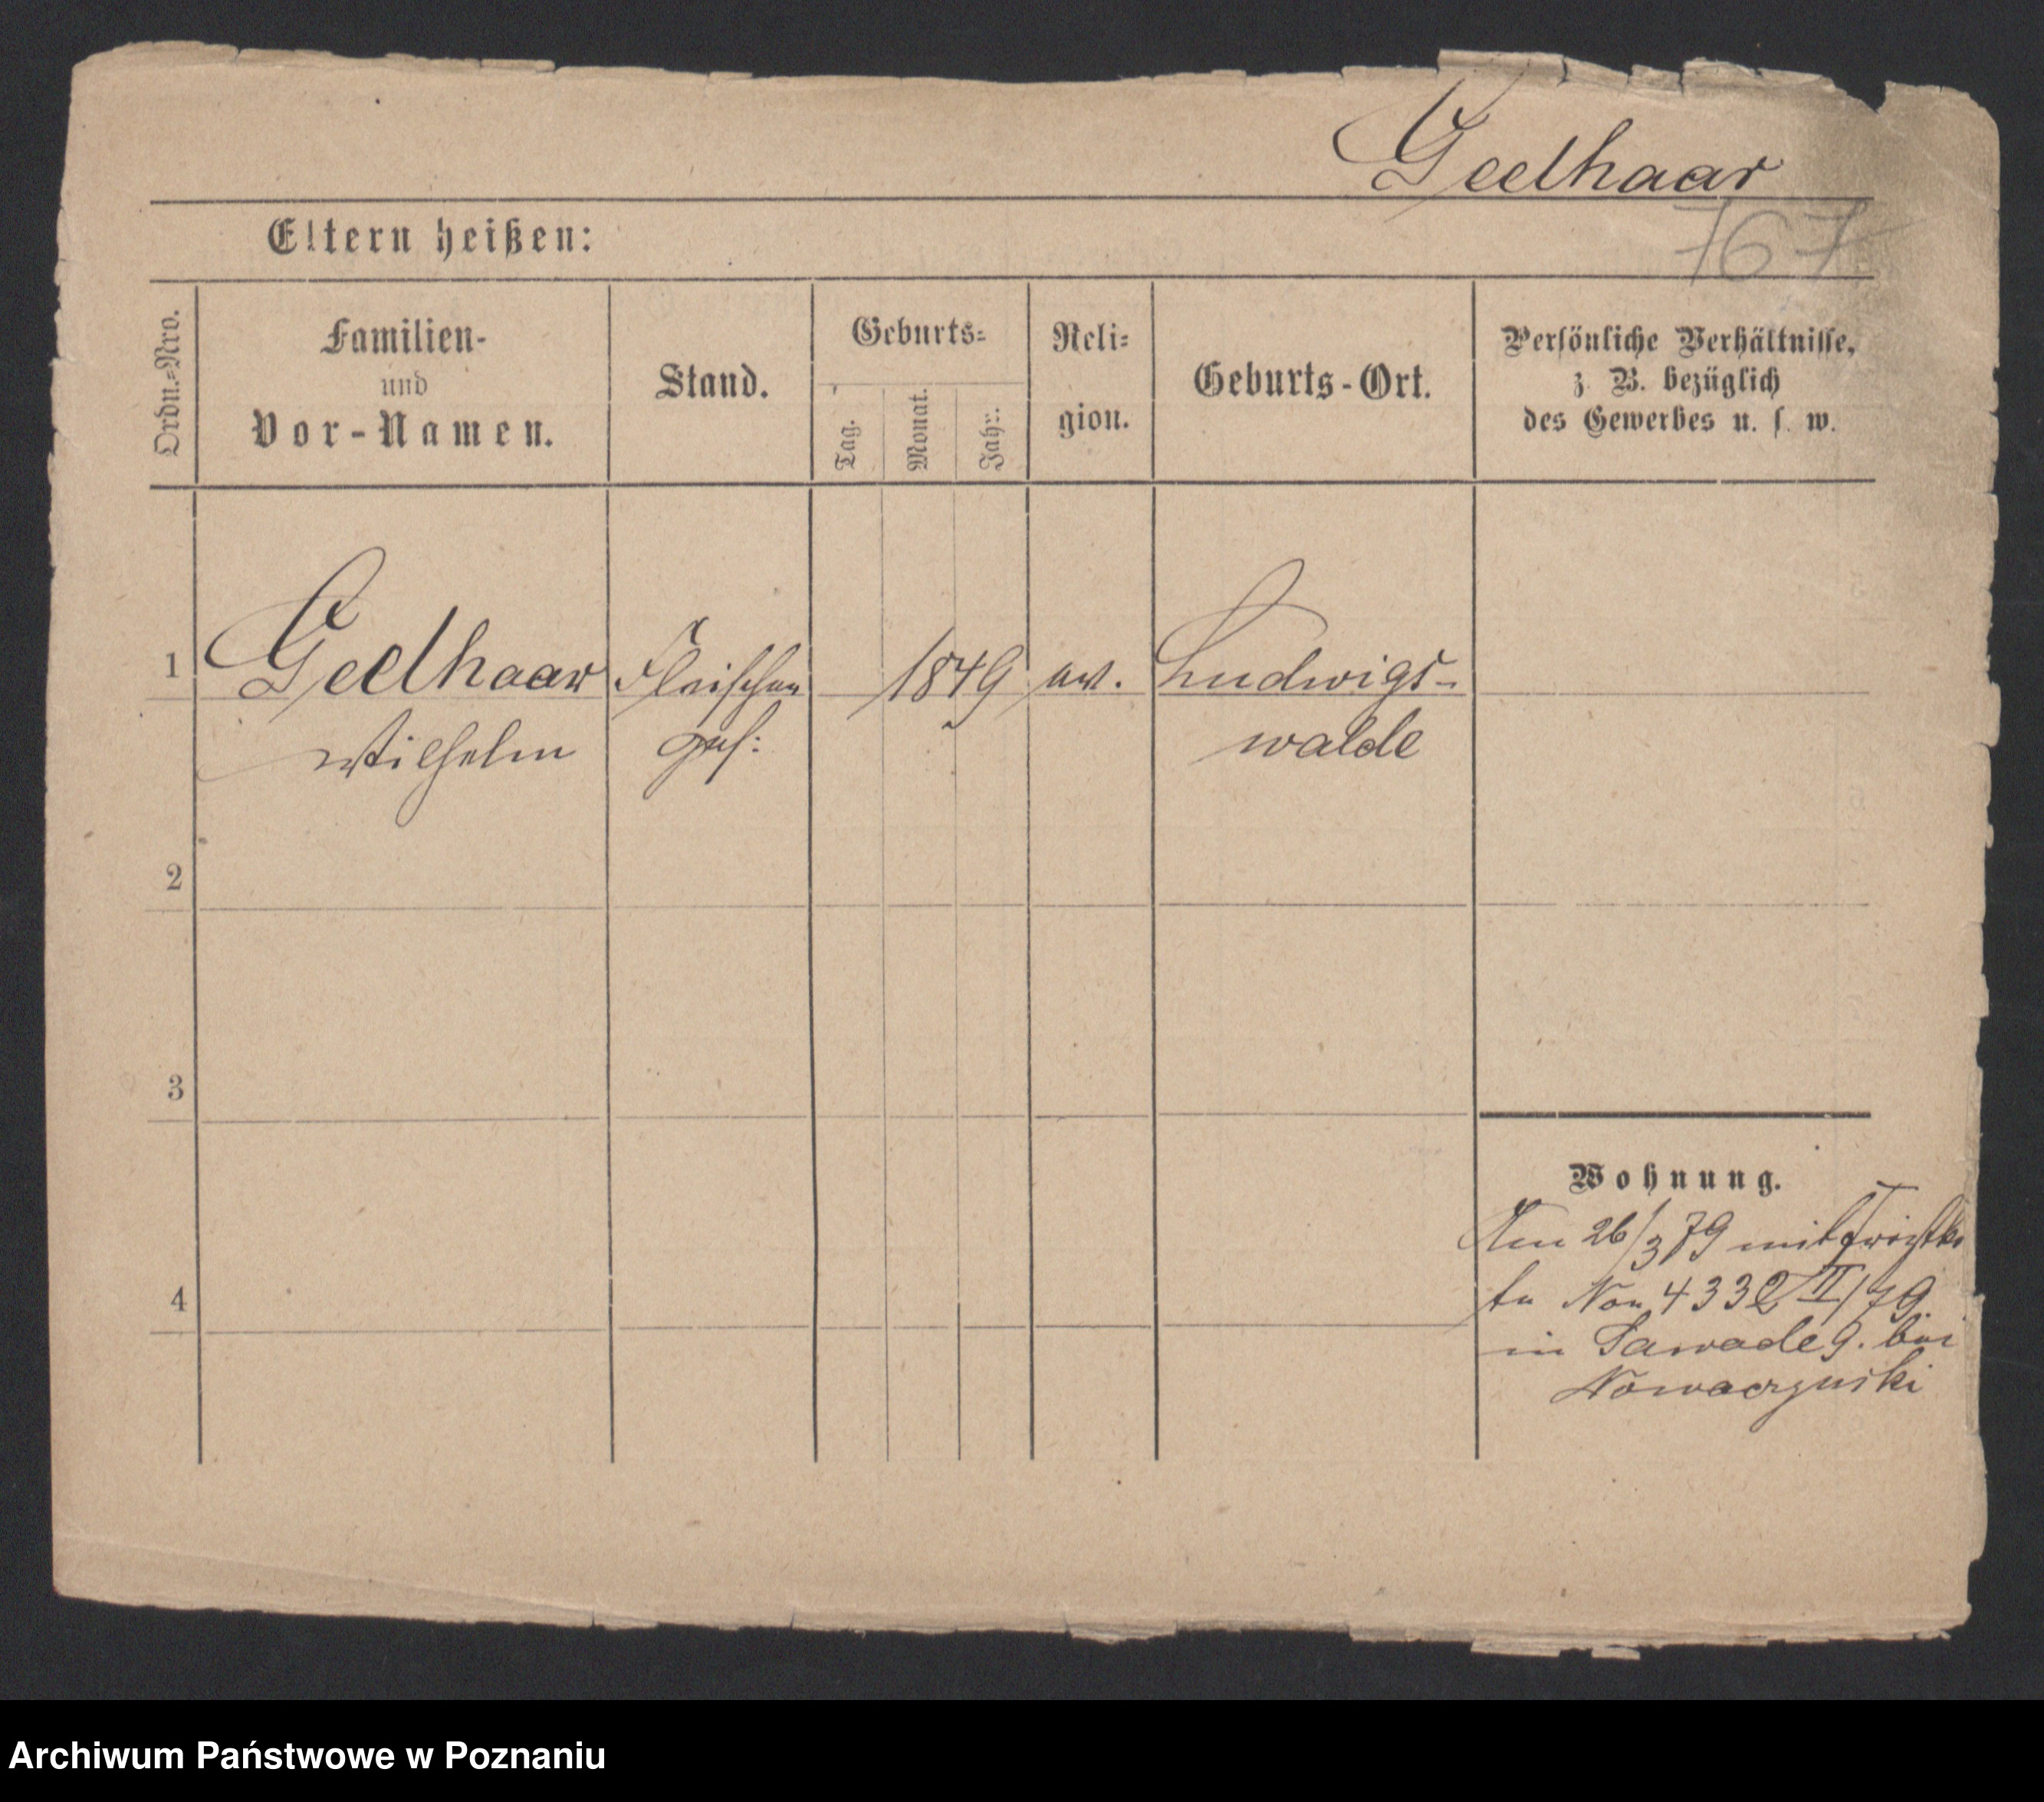 Geelhaar
767
Eltern heißen:
Ordn.=Nro.
Familien-
und
Vor-Namen.
Stand.
Geburts=
Tag.
Monat.
Jahr.
Reli=
gion.
Geburts-Ort.
Persönliche Verhältnisse,
z. B. bezüglich
des Gewerbes u. s. w.
1 Geelhaar Fleischer 1849 ev. Ludwigs-
Wilhelm ges: walde
2
3
4
Wohnung.
Am 26/3 79 mit
No 4332 II/79.
in Zawade 9. bei
Nowaczynski
Archiwum Państwowe w Poznaniu